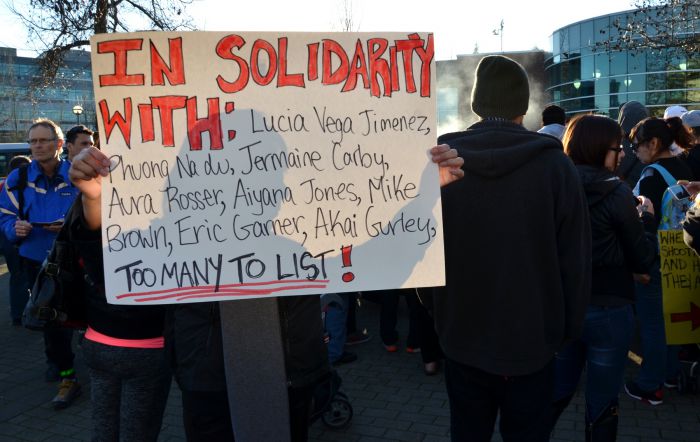 IN SOLIDARITY
WITH: Lucia Vega Jimenez,
Phuong Na du, Jermaine Carby,
Aura Rosser, Aiyana Jones, Mike
Brown, Eric Garner, Akai Gurley,
TOO MANY TO LIST!
WHE
SHOOT
AND H
THEY A